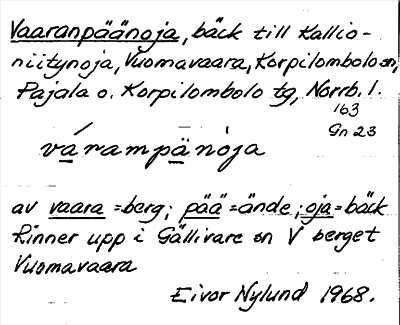 Vaaranpäänoja, bäck till Kallio-
niitynoja, Vuomavaara, Korpilombolo sn,
Pajala o. Korpilombolo tg, Norrb. l.
163
Gn 23
várampänoja
av vaara = berg; pää = ände; oja = bäck
Rinner upp i Gällivare sn V berget
Vuomavaara
Eivor Nylund 1968.